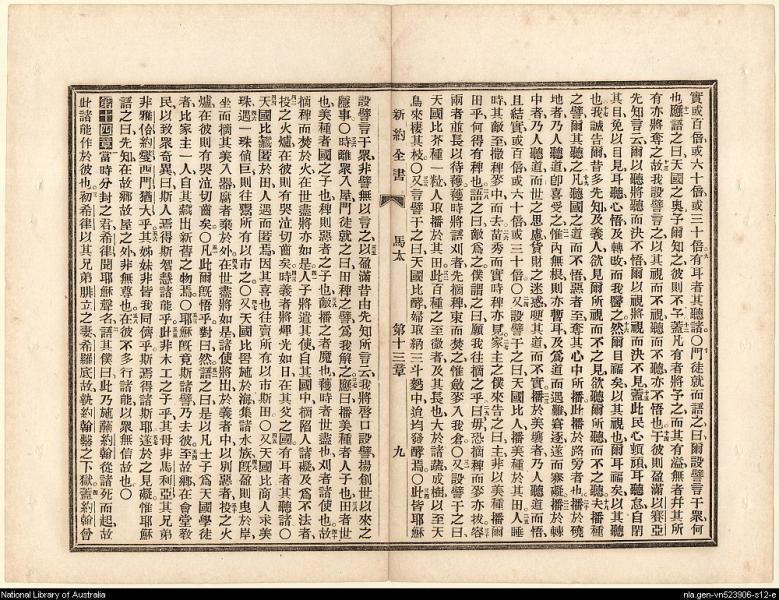 實或百倍或六十倍或三十倍有耳者其聽諸〇門徒就而語之曰爾設譬言于衆何
也應語之曰天國之奧予爾知之彼則不予蓋凡有者將予之而其有溢無者幷其所
有亦將奪之故我設譬言之以其視而不視聽而不聽亦不悟也于彼則盈滿以賽亞
先知言云爾以聽將聽而決不悟爾以視將視而決不見蓋此民心頑頭耳聽怠自閉
其目免以目見耳聽心悟及轉改而我醫之然爾目福矣以其視也爾耳福矣以其聽
也我誠告爾昔多先知及義人欲見爾所視而不之見欲聽爾所聽而不之聽夫播種
之譬爾其聽之凡聽國之道而不悟惡者至奪其心中所播此播於路旁者也播於磽
地者乃人聽道卽喜受之惟內無根則亦暫耳及爲道而遇難窘逐遂而礙播於棘
中者乃人聽道而世之思慮貨財之迷惑梗其道而不實播於美壤者乃人聽道而悟
且結實或百倍或六十倍或三十倍〇又設譬于之曰天國比人播美種於其田人睡
時其敵至撒稗麥中而去苗秀而實時稗亦見家主之僕來告之曰主非以美種播爾
田乎何得有稗也語之曰敵爲之僕謂之曰願我往摘之乎曰毋恐摘稗而麥亦拔容
兩者並長以待穫穫時將語刈者先摘稗束而焚之惟斂麥入我倉〇又設譬于之曰
天國比芥種一粒人取播於其田此百種之至微者及其長也大於諸蔬成樹以至天
鳥來棲其枝〇又言譬于之曰天國比酵婦取納三斗麪中迨均發酵焉〇此皆耶穌
新約全書
馬太
第十三章
九
設譬言于衆非譬無以言之以盈滿昔由先知所言云我將啓口設譬揚創世以來之
隱事〇時離衆入屋門徒就之曰田稗之譬爲我解之應曰播美種者人子也田者世
也美種者國之子也稗則惡者之子也敵播之者魔也穫時者世盡也刈者諸使也故
摘稗而焚於火在世盡將亦如是人子將遣其使自其國中摘陷人諸礙及爲不法者
投之火爐在彼則有哭泣切齒矣時義者將輝光如日在其父之國有耳者其聽諸〇
天國比藏匿於田人遇而匿焉因其喜也往賣所有以市斯田〇又天國比商人求美
珠遇一珠値巨則往鬻所有以市之〇又天國比罟施於海集諸水族旣盈則曳於岸
坐而摘其美入器腐者棄於外在世盡將如是諸使將出於義者中以別惡者投之火
爐在彼則有哭泣切齒矣〇凡此爾旣悟乎對曰然語之曰是以凡士子爲天國學徒
者比家主一人自其藏出新舊之物焉〇耶穌旣竟斯諸譬乃去彼至故鄉在會堂敎
民以致衆奇異曰斯人焉得斯智慧諸能乎此非木工之子乎其母非馬利亞其兄弟
非雅各約瑟西門猶大乎其姊妹非皆我同儕乎斯焉得諸斯耶遂於之見礙惟耶穌
語之曰先知在故鄉故屋之外非無尊也在彼不多行諸能以衆無信故也〇
第十四章當時分封之君希律聞耶穌聲名語其僕曰此乃施蘸約翰從諸死而起故
此諸能作於彼也初希律以其兄弟腓立之妻希羅底故執約翰縶之下獄蓋約翰曾